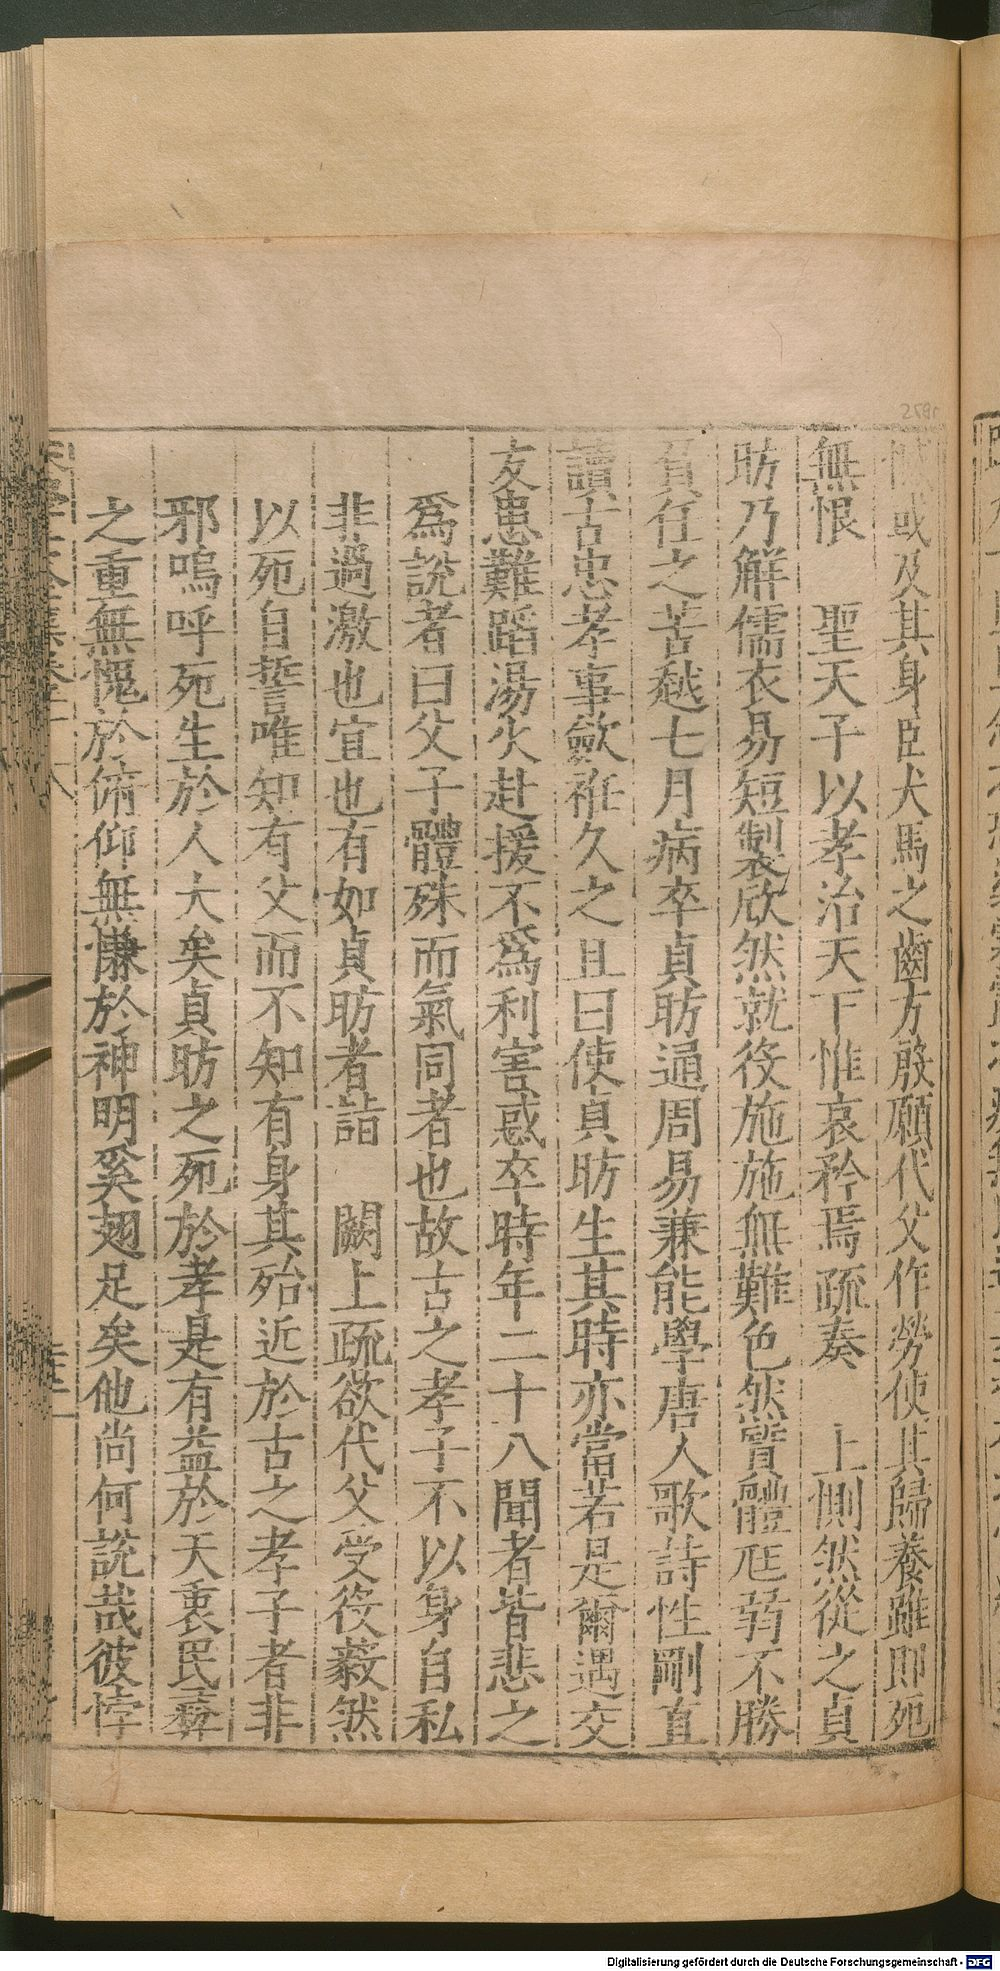 或及其身臣犬馬之齒方殷願代父作勞使其歸養雖即死
無恨　聖天子以孝治天下惟哀矜焉疏奏　上惻然從之貞
昉乃解儒衣易短製欣然就役施施無難色然質體尫弱不勝
負任之苦越七月病卒貞昉通周易兼能學唐人歌詩性剛直
讀古忠孝事歛袵久之且曰使貞昉生其時亦當若是爾遇交
友患難蹈湯火赴援不為利害惑卒時年二十八聞者皆悲之
為說者曰父子體殊而氣同者也故古之孝子不以身自私
非過激也宜也有如貞昉者詣　闕上疏欲代父受役藙然
以死自誓唯知有父而不知有身其殆近於古之孝子者非
邪嗚呼死生於人大矣貞昉之死於孝是有益於天衷民彝
之重無愧於俯仰無慊於神明奚翅足矣他尚何說哉彼悖
2591
Digitalisierung gefördert durch die Deutsche Forschungsgemeinschaft - DFG